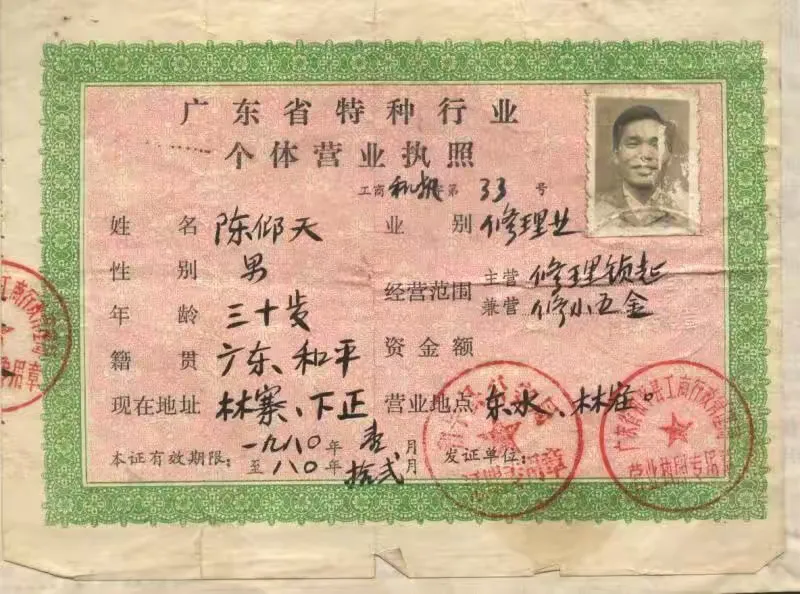 广东省特种行业
个体营业执照
工商和机字第 33 号
姓名 陈仰天 业别 修理业
性别 男
经营范围 主营 修理锁起
兼营 修小五金
年龄 三十岁
籍贯 广东、和平 资金额
现在地址 林寨、下正 营业地点 东水、林寨。
本证有效期限: 一九八〇年壹月
至八〇年拾弍月 发证单位:
工商行政
专用章
营业执照专用章